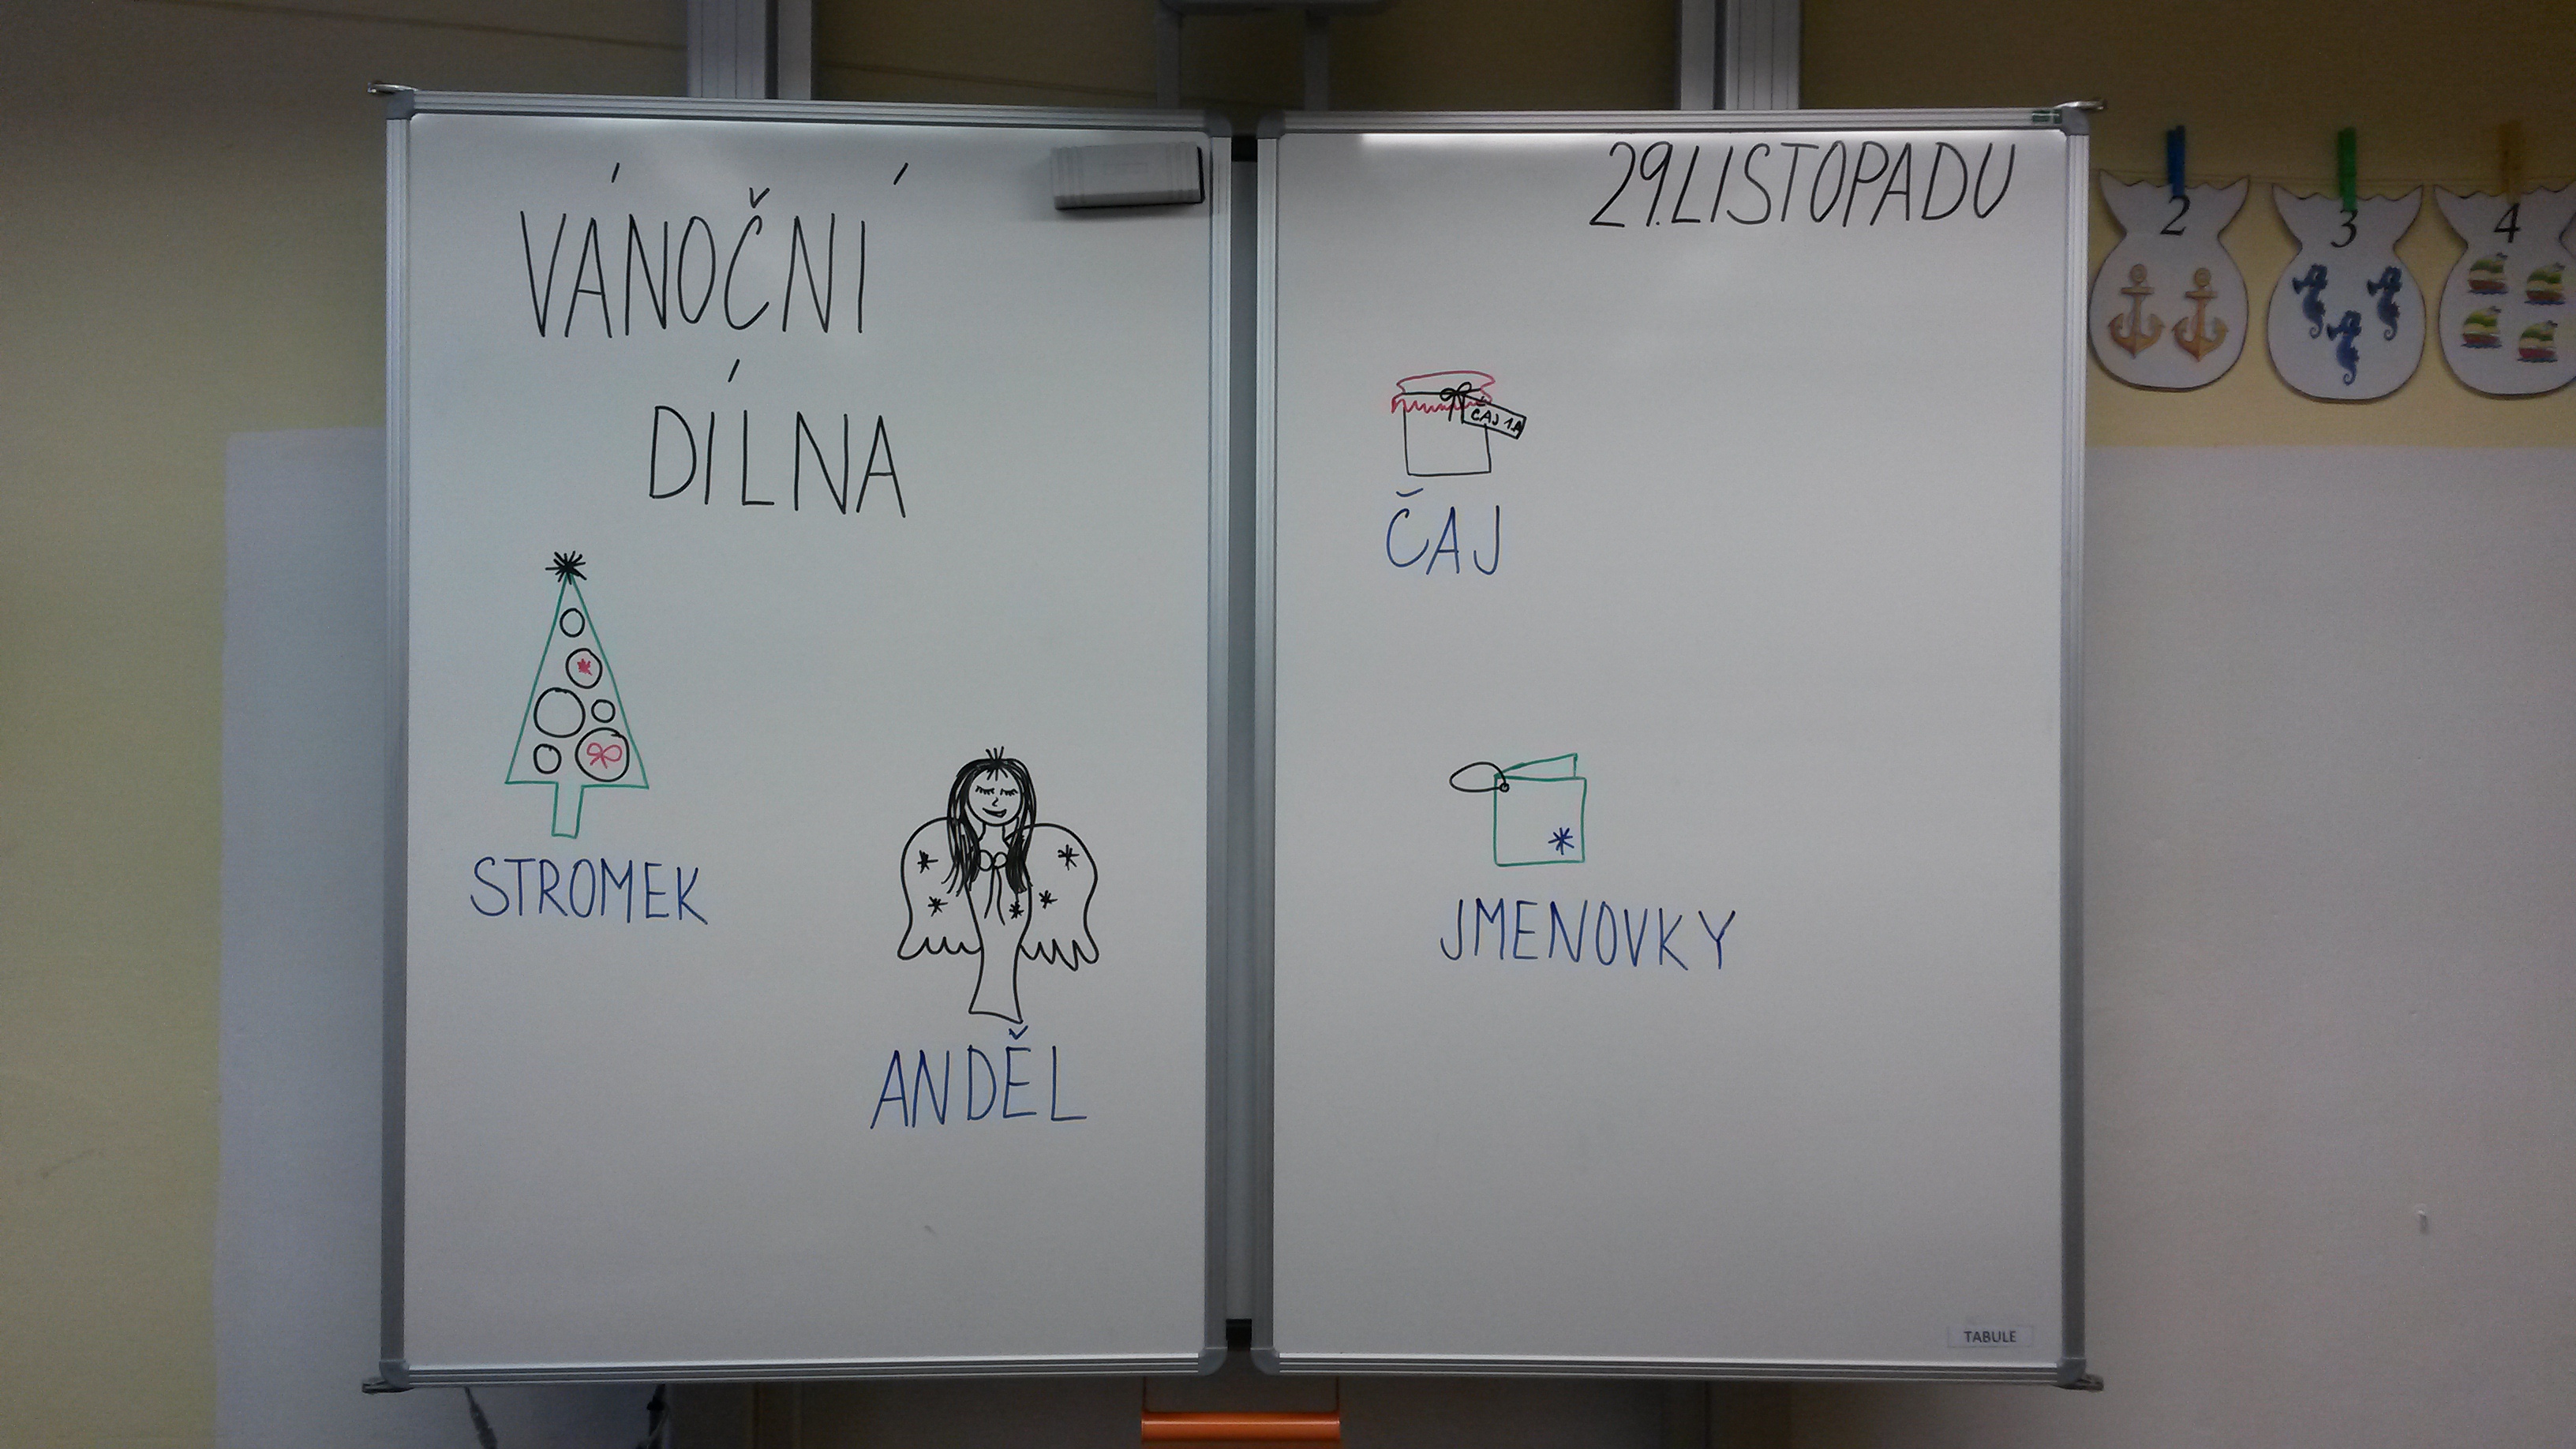 VÁNOČNÍ
DÍLNA
STROMEK
ANDĚL
29.LISTOPADU
ČAJ 1.A
ČAJ
JMENOVKY
TABULE
2
3
4